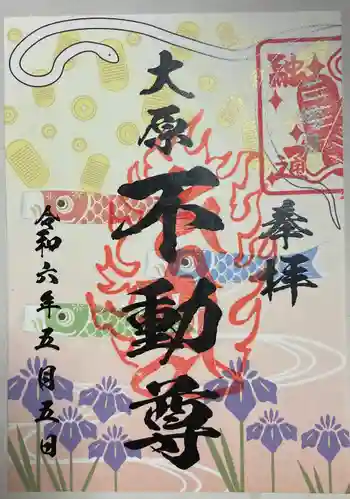 奉拝
融通
大原
不動尊
令和六年五月五日